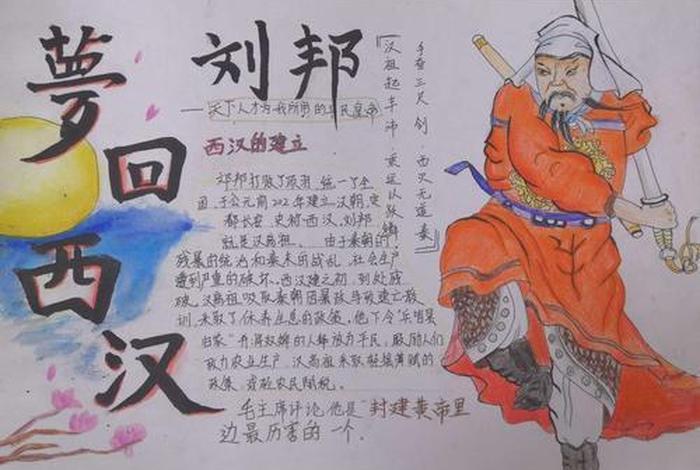 夢回西汉
刘邦
——天下人才为我所用的平民皇帝
『汉祖起丰沛,乘运以跃鳞
手奋三尺剑,西灭无道秦』
西汉的建立
邓邦打败了项羽,统一了全
国,于公元前202年建立汉朝,定
都长安,史称西汉,刘邦
就是汉高祖。由于秦朝的
残暴的统治和秦末的战乱,社会生产
遭到严重的破坏。西汉建之初,到处残
破,汉高祖吸取秦朝因暴政导致速亡教
训,采取了休养生息的政策,他下令"兵皆罢
归家"并将奴婢的人释放为平民,鼓励人们
致力农业生产,汉高祖采取轻摇薄赋的
政策,减轻农民赋税。
毛主席评论,他是"封建黄帝里
边最历害的一个.